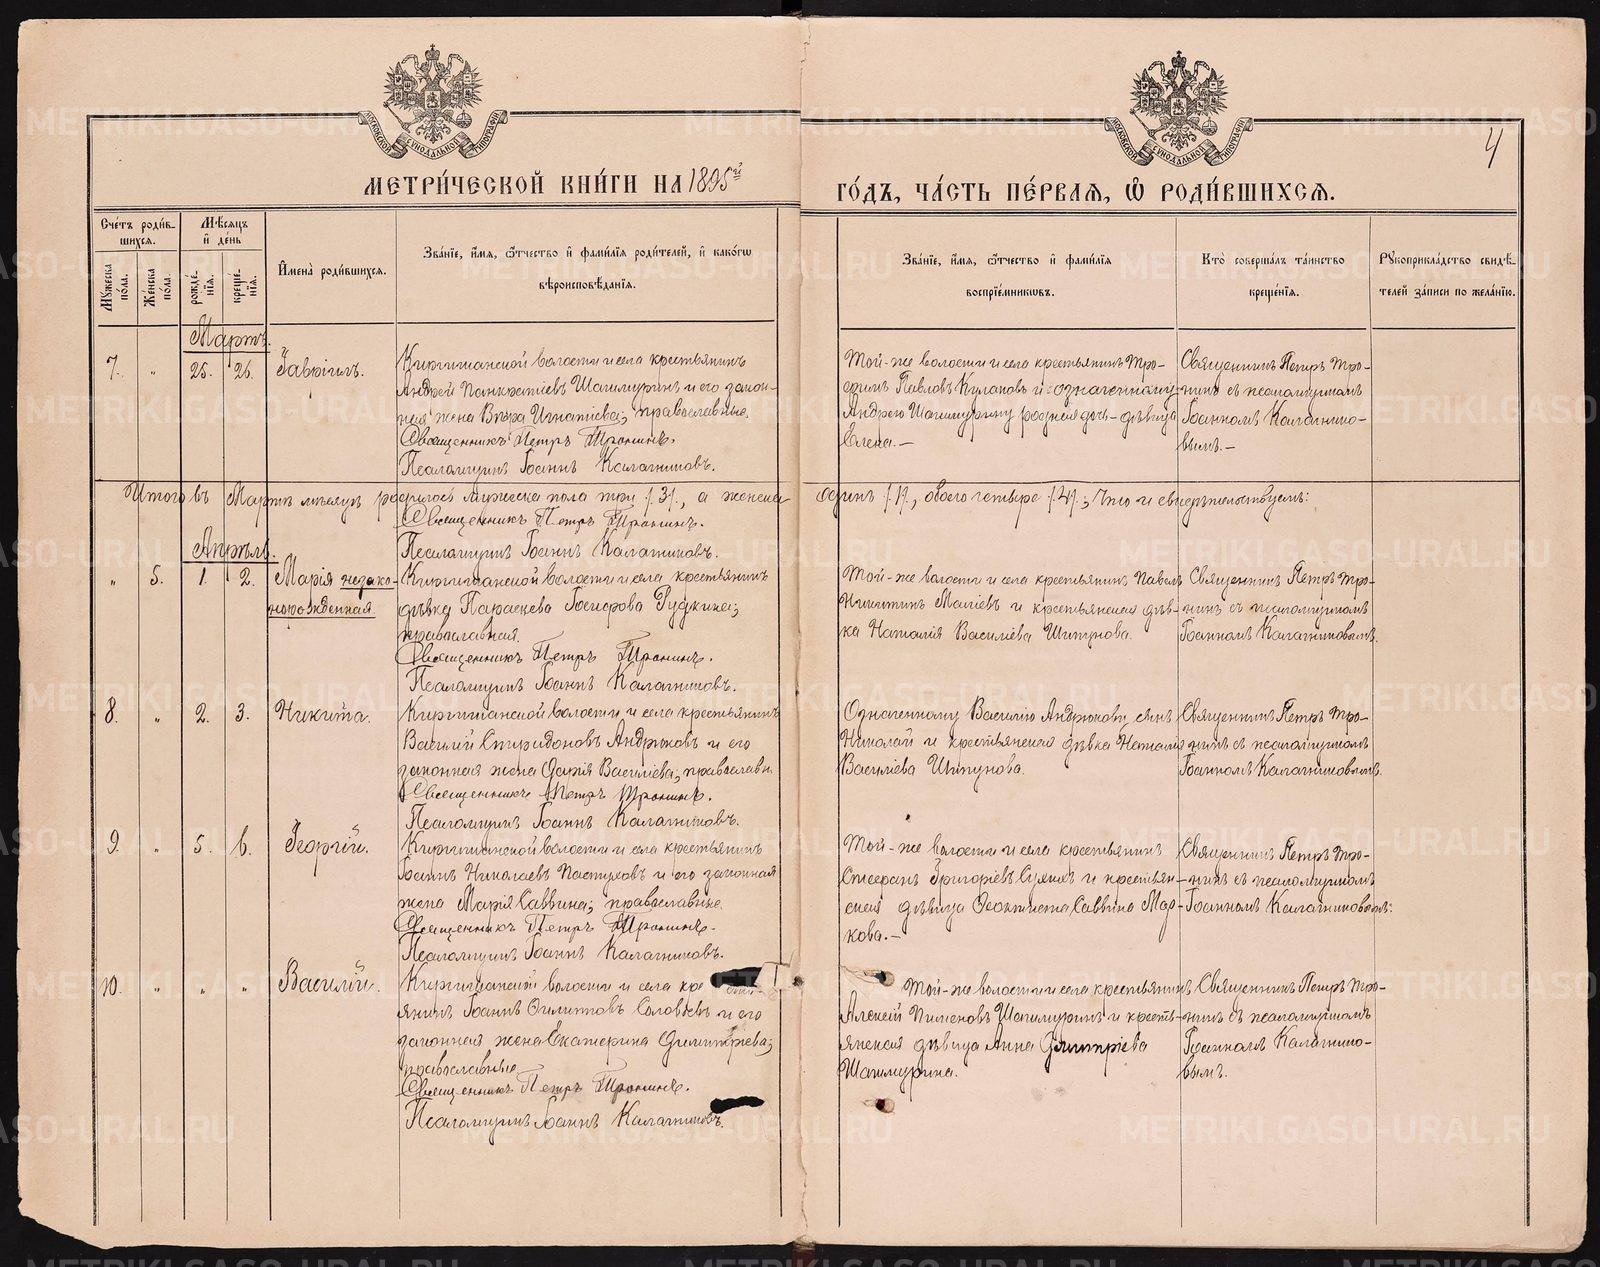 МЕТРИ́ЧЕСКОЙ КНИ́ГИ НА 1895й
ГО́ДЪ, ЧА́СТЬ ПЕ́РВАЯ, Ѡ РОДИ́ВШИХСЯ.
4
МОСКОВСКОЙ СУНОДАЛЬНОЙ ТИПОГРАФIИ
МОСКОВСКОЙ СУНОДАЛЬНОЙ ТИПОГРАФIИ
Сче́тъ роди́вшихся.
Му́жеска по́ла.
Же́нска по́ла.
Мѣ́сяцъ и де́нь
рожде́нїя.
креще́нїя.
И҆мена̀ роди́вшихся.
Зва́нїе, и҆́мя, ѻ҆́тчество и҆ фами́лїя роди́телей, и҆ како́гѡ
вѣроисповѣ́данїя.
Зва́нїе, и҆́мя, ѻ҆́тчество и҆ фами́лїя
воспрїе́мникѡвъ.
Кто̀ соверша́лъ та́инство
креще́нїя.
Рꙋкоприкла́дство свидѣ́-
телей за́писи по жела́нїю.
Мартъ.
7. " 25. 26. Гаврiилъ.
Киргишанской волости и села крестьянинъ
Андрей Панкратiевъ Шашмуринъ и его закон-
ная жена Вѣра Игнатiева; православные.
Священникъ Петръ Тронинъ.
Псаломщикъ Іоаннъ Калашниковъ.
Той-же волости и села крестьянинъ Тро-
фимъ Павловъ Кулаковъ и означенному
Андрею Шашмурину родная дочь - дѣвица
Елена.-
Священникъ Петръ Тро-
нинъ съ псаломщикомъ
Іоанномъ Калашнико-
вымъ.-
Итого въ Мартѣ мѣсяцѣ родилось мужеска пола три /3/., а женска одинъ /1/., обоего четыре /4/.; Что и свидѣтельствуемъ:
Священникъ Петръ Тронинъ.
Псаломщикъ Іоаннъ Калашниковъ.
Апрѣль.
" 5. 1. 2. Марiя незако-
норожденная.
Киргишанской волости и села крестьянинъ
дѣвка Параскева Рудкина;
православная.
Священникъ Петръ Тронинъ.
Псаломщикъ Іоаннъ Калашниковъ.
Той-же волости и села крестьянинъ Павелъ
Никитинъ и крестьянская дѣв-
ка Наталiя Василiева Шипунова.
Священникъ Петръ Тро-
нинъ съ псаломщикомъ
Іоанномъ Калашниковымъ.
8. " 2. 3. Никита.
Киргишанской волости и села крестьянинъ
Василiй Спиридоновъ Андрюковъ и его
законная жена Дарiя Василiева; православн.
Священникъ Петръ Тронинъ.
Псаломщикъ Іоаннъ Калашниковъ.
Означенному Василiю Андрюкову сынъ
Николай и крестьянская дѣвка Наталiя
Василiева Шипунова.
Священникъ Петръ Тро-
нинъ съ псаломщикомъ
Іоанномъ Калашниковымъ.
9. " 5. 6. Георгiй.
Киргишанской волости и села крестьянинъ
Іоаннъ Николаевъ Пастуховъ и его законная
жена Марiя Саввина; православные.
Священникъ Петръ Тронинъ.
Псаломщикъ Іоаннъ Калашниковъ.
Той-же волости и села крестьянинъ
Стефанъ Григорiевъ Сухихъ и крестьян-
ская дѣвица Феоктиста Саввина Мар-
кова.-
Священникъ Петръ Тро-
нинъ съ псаломщикомъ
Іоанномъ Калашниковымъ.
10. " " " Василiй.
Киргишанской волости и села кре
янинъ Іоаннъ Филиповъ Соловьевъ и его
законная жена Екатерина Димитрiева;
православные.
Священникъ Петръ Тронинъ.
Псаломщикъ Іоаннъ Калашниковъ.
Той-же волости и села крестьянинъ
Алексiй Пименовъ Шашмуринъ и кресть-
янская дѣвица Анна Димитрiева
Шашмурина.
Священникъ Петръ Тро-
нинъ съ псаломщикомъ
Іоанномъ Калашнико-
вымъ.
METRIKI.GASO-URAL.RU